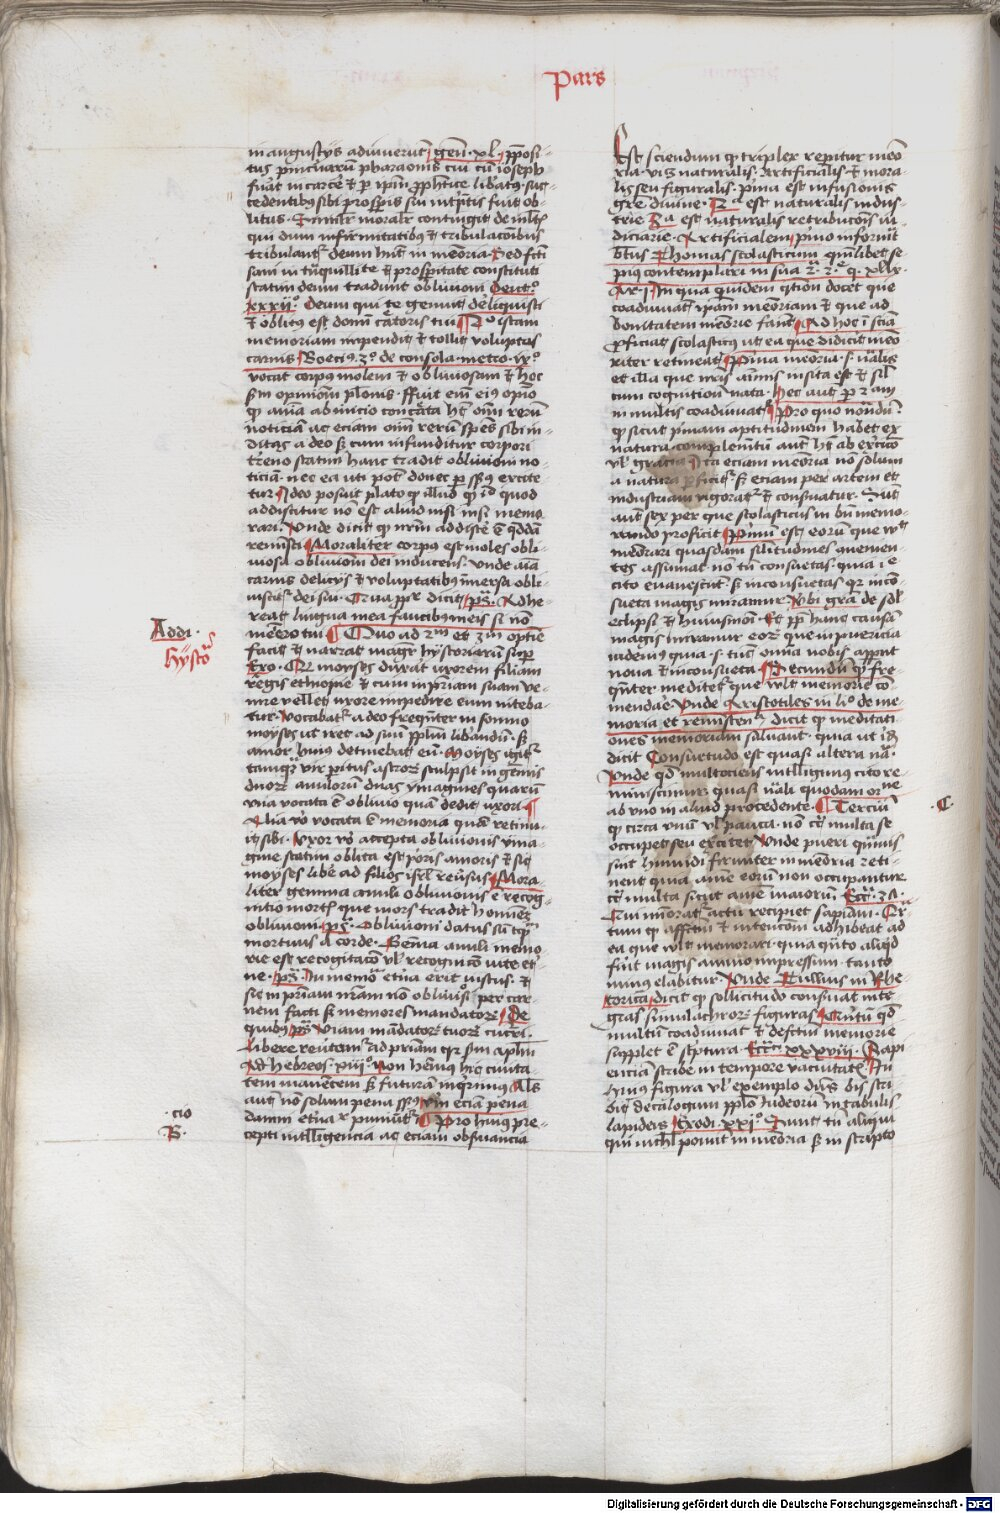 Pars
in angustijs adiuuerunt gen. xl. pposi-
tus pincernaru pharaonis cui cu ioseph
fuit in carce et p ipm pphetice libatus suc-
cedentibus sibi prosperis sui inpretis fuit ob-
litus. Similr moralr contingit de mltis
qui dum infirmitatibus et tribulacoibus
tribulantr deum hnt in meoria. Sed fcti
sani in tnquillite et prospitate constituti
statim deum tradunt obliuioni Deut.o
xxxii.o Deum qui te genuit dereliquisti
et oblitus est domi catoris tui 2o istam
memoriam inpendit et tollit voluptas
carnis Boecius 3o de consola. metro. ix.o
vocat corpus molem et obliuiosam et hoc
scdm opinioni platonis. Fuit eni eius opio
q aia ab inicio concreata ht omi reru
noticia ac eciam omi reru spes sibi in-
ditas a deo sz cum infunditur corpori
treno statim hanc tradit obliuioni no-
ticia. nec ea uti pot donec p ssus excite
tur Ideo posuit plato q illud q io quod
addiscitur no est aliud nisi memo
rari. Unde dicit q nrm addiscere e qdda
reminisci Moraliter corpus est moles obli-
uiosa obliuioni dei inducens. Unde aia
carnis delicijs et voluptatibus inmersa obli-
uiscitr dei sui. Contra ppr dicit ps. Adhe
reat lingua mea faucibus meis si no
meero tui Quo ad 2m et 3m optie
facit et narrat magr hystoriarum sup
Exo. Qr moyses duxit uxorem filiam
regis ethiopie et cum in priam suam ve-
nire vellet uxore inpedire eum niteba-
tur. Vocabatr a deo frequenter in somno
moyses ut iret ad suu pplm libandu. sz
amor huius detinebat eu. Moyses igitr
tanquam vir peritus astror sculpsit in gemis
duor anulorum duas ymagines quaru
una vocata e obliuio qua dedit uxori
Alia vo vocata e memoria qua retinu-
it sibi. Uxor vo accepta obliuionis yma-
gine statim oblita est prioris amoris et sic
moyses libe ad filios isrl reusus Mora
liter gemma anuli obliuionis e recog-
nitio mortis que mors tradit homines
obliuioni. ps. Obliuioni datus su tqm
mortuus a corde. Gemma anuli memo-
rie est recogitaco vl recognico vite et-
ne. ps. In memoria etna erit iustus. et
sic in priam nram no obliuiosi per car-
nem facti sz memores mandator De
quibus ps. Viam mandator tuor cucurri
Libere reuertamr ad priam qr scdm aplm
Ad hebreos. xiii.o Non hemus hic ciuita-
tem manentem sz futuram inqrimus Als
aut no solum pena ssus vm ecia pena
damni etna r puniutr Pro huius pre-
cepti intelligencia ac eciam obseruancia
Addi.
hysto
. cio
. B.
Est sciendum q triplex repitur meo
ria. vis naturalis. Artificialis. et mora
lis seu figuralis. pima est infusionis
gre diuine. 2a est naturalis indus-
trie 3a est naturalis retribucois iu-
diciarie. Artificialem primo informat
btus Thomas scolasticum quilibet se
pius contemplari in sua 2a. 2e. q. xlix
Ar. j In qua quidem qstion docet que
coadiuuat ipsam meoriam et que ad
bonitatem meorie faciut Ad hoc i scia
proficiat scolasticus ut ea que didicit meo
riter retineat Prima meoria. s. naturalis
et illa que nris animis insita est et sil
cum cognitioni nata. Hec aut p 2am
in multis coadiuuat Pro quo notandu.
q sicut pimam aptitudinem habet ex
natura complementu aut ht ab exrcicio
vl gracia Ita eciam meoria no solum
a natura pficitr sz eciam per artem et
industriam vigoratr et consuatur. Sunt
aut sex per que scolasticus in bn memo-
rando proficit Primu est eoru que vult
memorari quasdam silitudines quenien-
tes assumat no tn consuetas. quia i e
cito euanescunt. sz inconsuetas qr incon-
sueta magis miramur Ubi gra de solis
eclipsi et huiusmoi. Et pp hanc causam
magis miramur eor que in puericia
uidemus quia. s. tunc omia nobis apparent
noua et inconsueta. Secundu q fre-
quter meditetr que vult memorie co-
mendare. Unde Aristotiles in lio de me-
moria et reminscen dicit q meditati-
ones memoriam saluant. quia ut ibi
dicit Consuetudo est quasi altera na.
Unde qd multociens intelligimus cito re
miniscimur quasi nali quodam ordine
ab uno in aliud procedente. Tercium
q circa vnu vl pauca. no circa multa se
occupet seu exrcitet Unde pueri quis
sint humidi firmiter in meoria reti-
nent quia anime eorum non occupantur
circa multa sicut anime maiorum. Eccl. 3a.
Cui mioratr actu recipiet sapiam. Qr-
tum q affectum et intencom adhibeat ad
ea que vult memorari. quia quto aliqd
fuit magis animo inpressum. tanto
minus elabitur. Unde Tullius in Rhe
torica dicit q sollicitudo consuat inte
gras simulachror figuras Quintum qd
multu coadiuuat et defctum memorie
supplet e scptura. Eccl. xxxviii. Sapi
enciam scribe in tempore vacuitatis. In
huius figura vl exemplo dns bis scri-
bit decalogum pplo iudeoru in tabulis
lapideis. Exodi. xxi.o Sunt tn aliqui
qui nichil ponut in meoria sz in scripto
. C
Digitalisierung gefördert durch die Deutsche Forschungsgemeinschaft - DFG